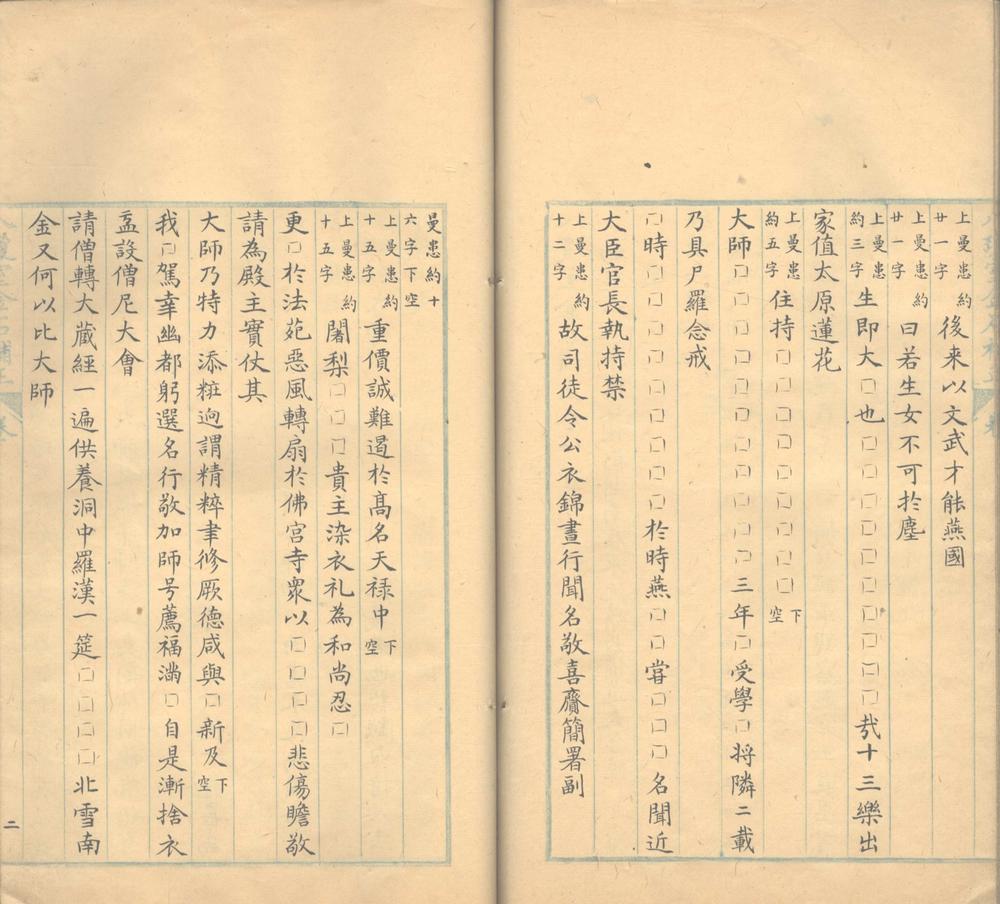 上曼患約廿一字後来以文武才能燕國
上曼患約廿一字曰若生女不可於塵
上曼患約三字生即大□也□□□□□□□□□□哉十三樂出
家值太原蓮花
上曼患約五字住持□□□□□□□□□□下空
大師□□□□□□□□□□□三年□受學□将隣二載
乃具尸羅念戒
□時□□□□□□□□□於時燕□□甞□□□名聞近
大臣官長執持禁
上曼患約十二字故司徒令公衣錦晝行聞名敬喜齎簡署副
曼患約十六字下空
上曼患約十五字重價誠難遏於髙名天禄中下空
上曼患約十五字闍梨□□□貴主染衣礼為和尚忍□
更□於法苑惡風轉扇於佛宫寺衆以□□□□悲傷瞻敬
請為殿主實仗其
大師乃特力添粧逈謂精粹聿修厥德咸與□新及下空
我□駕幸幽都躬選名行敬加師号薦福滿□自是漸捨衣
盂設僧尼大會
請僧轉大蔵經一遍供養洞中羅漢一筵□□□□北雪南
金又何以比大師
二